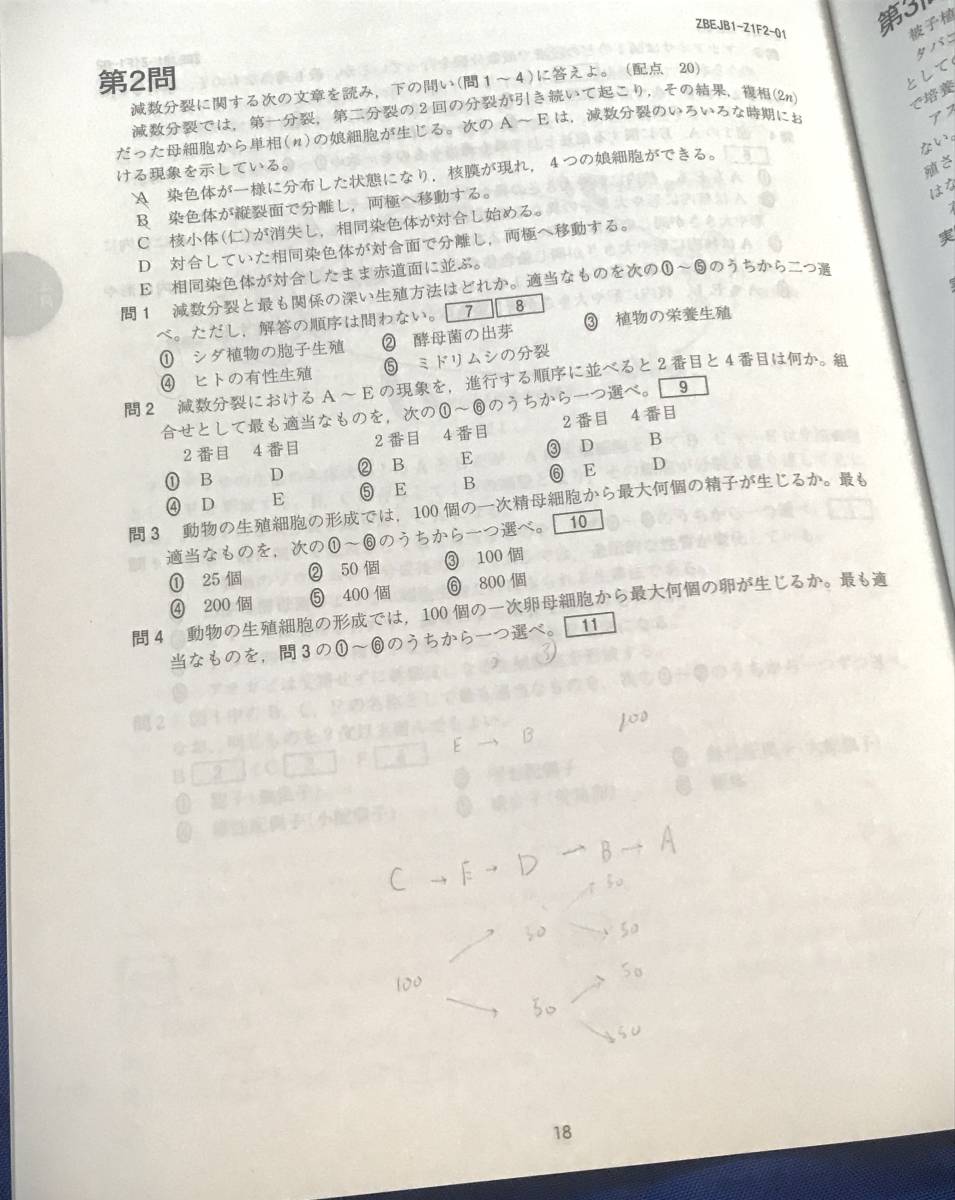 ZBEJB1-Z1F2-01
第2問
減数分裂に関する次の文章を読み，下の問い(問1～4)に答えよ。(配点 20)
減数分裂では，第一分裂，第二分裂の2回の分裂が引き続いて起こり，その結果，複相(2n)
だった母細胞から単相(n)の娘細胞が生じる。次のA～Eは，減数分裂のいろいろな時期にお
ける現象を示している。
A 染色体が一様に分布した状態になり，核膜が現れ，4つの娘細胞ができる。
B 染色体が縦裂面で分離し，両極へ移動する。
C 核小体(仁)が消失し，相同染色体が対合し始める。
D 対合していた相同染色体が対合面で分離し，両極へ移動する。
E 相同染色体が対合したまま赤道面に並ぶ。
問1 減数分裂と最も関係の深い生殖方法はどれか。適当なものを次の①～⑤のうちから二つ選
べ。ただし，解答の順序は問わない。 7 8
① シダ植物の胞子生殖 ② 酵母菌の出芽 ③ 植物の栄養生殖
④ ヒトの有性生殖 ⑤ ミドリムシの分裂
問2 減数分裂におけるA～Eの現象を，進行する順序に並べると2番目と4番目は何か。組
合せとして最も適当なものを，次の①～⑥のうちから一つ選べ。 9
2番目 4番目 2番目 4番目 2番目 4番目
① B D ② B E ③ D B
④ D E ⑤ E B ⑥ E D
問3 動物の生殖細胞の形成では，100個の一次精母細胞から最大何個の精子が生じるか。最も
適当なものを，次の①～⑥のうちから一つ選べ。 10
① 25個 ② 50個 ③ 100個
④ 200個 ⑤ 400個 ⑥ 800個
問4 動物の生殖細胞の形成では，100個の一次卵母細胞から最大何個の卵が生じるか。最も適
当なものを，問3の①～⑥のうちから一つ選べ。 11
③
100
E → B
C → E → D → B → A
50
50 50
100 50
50
50
18
第3問
被子植
タバコ
としての
で培養
アス
ない。
殖さ
はな
実